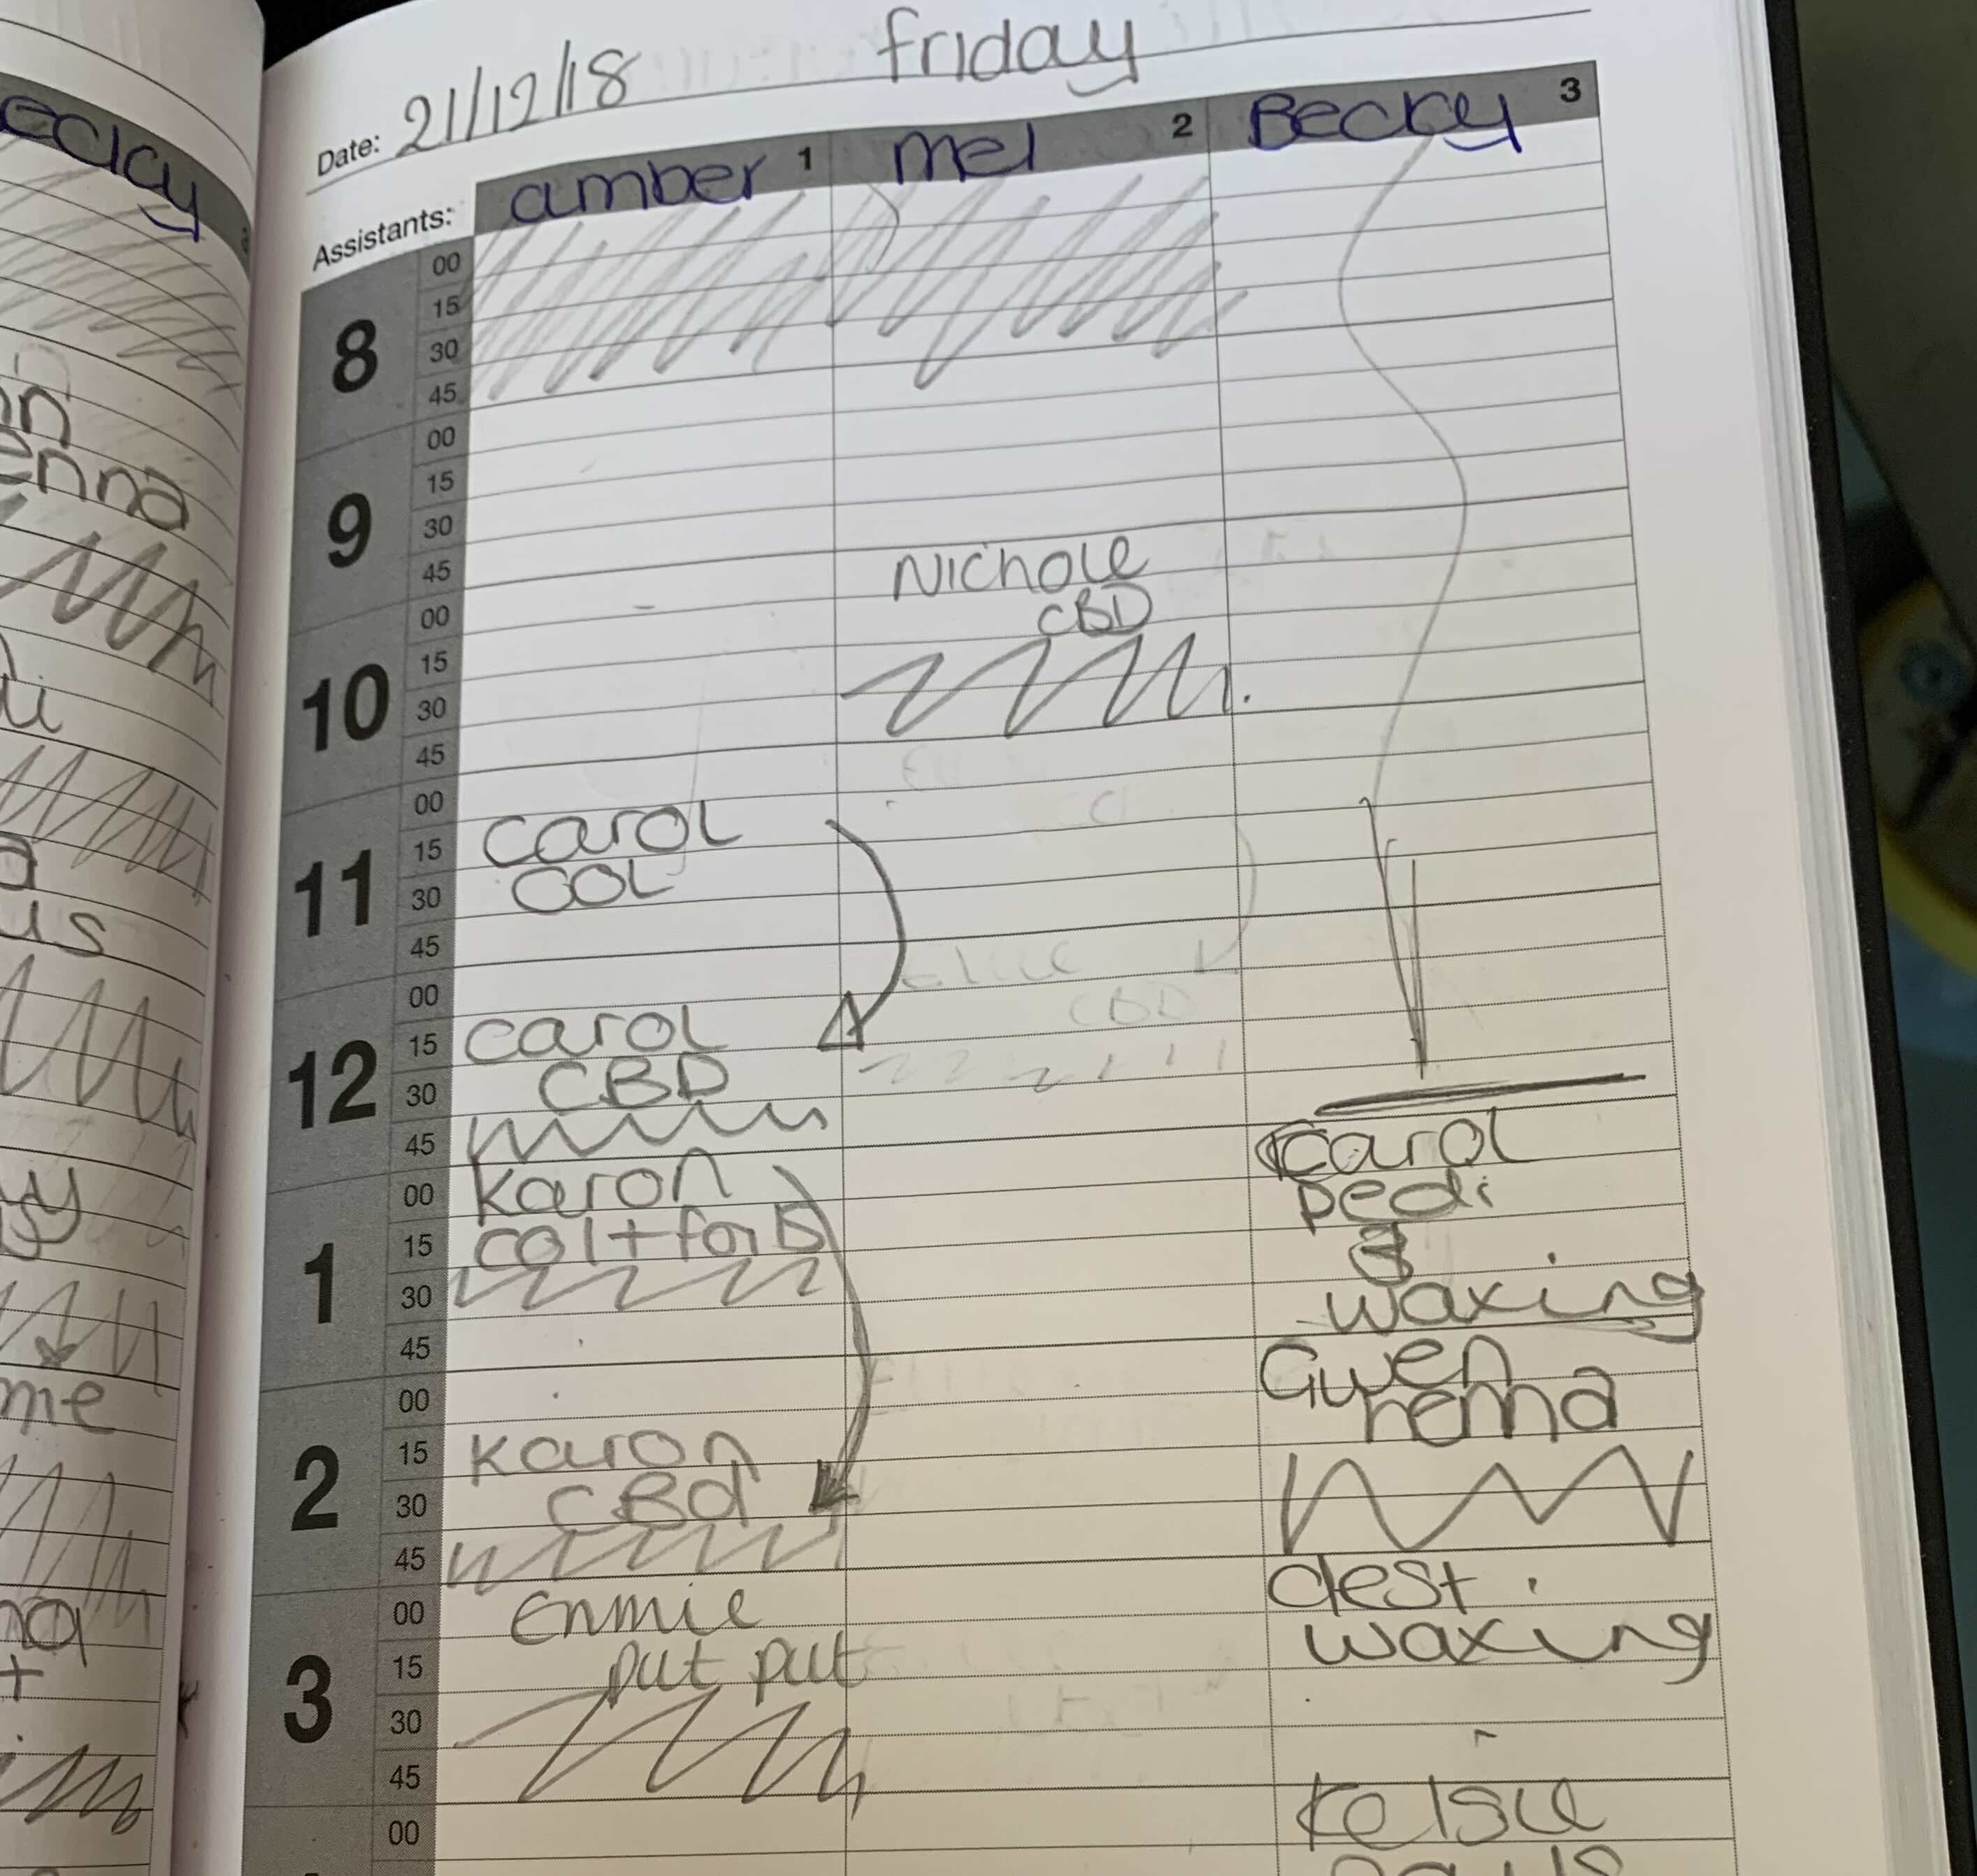 friday
Date: 21/12/18
Assistants: amber 1 mel 2 Becky 3
8 00
15
30
45
9 00
15
30
45 Nichole
10 00 CBD
15
30
45
11 00
carol
15
COL
30
45
12 00
carol
15
CBD
30
45 carol
karon
1 00 pedi
15 col + foils
30 waxing
45 Gwen
2 00 henna
15 karon
30 CBd
45
dest
3 00 Enmie
waxing
15 put put
30
45
Kelsie
00